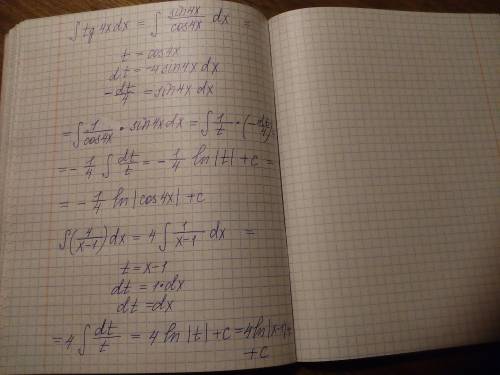 ∫ tg 4x dx = ∫ sin4x/cos4x dx =
t = cos4x
dt = -4 sin4x dx
-dt/4 = sin4x dx
= ∫ 1/cos4x • sin4x dx = ∫ 1/t • (-dt/4) =
= -1/4 ∫ dt/t = -1/4 ln|t| + c =
= -1/4 ln|cos4x| + c
∫ (4/x-1) dx = 4 ∫ 1/x-1 dx =
t = x-1
dt = 1•dx
dt = dx
= 4 ∫ dt/t = 4 ln|t| + c = 4 ln|x-1| +
+ c